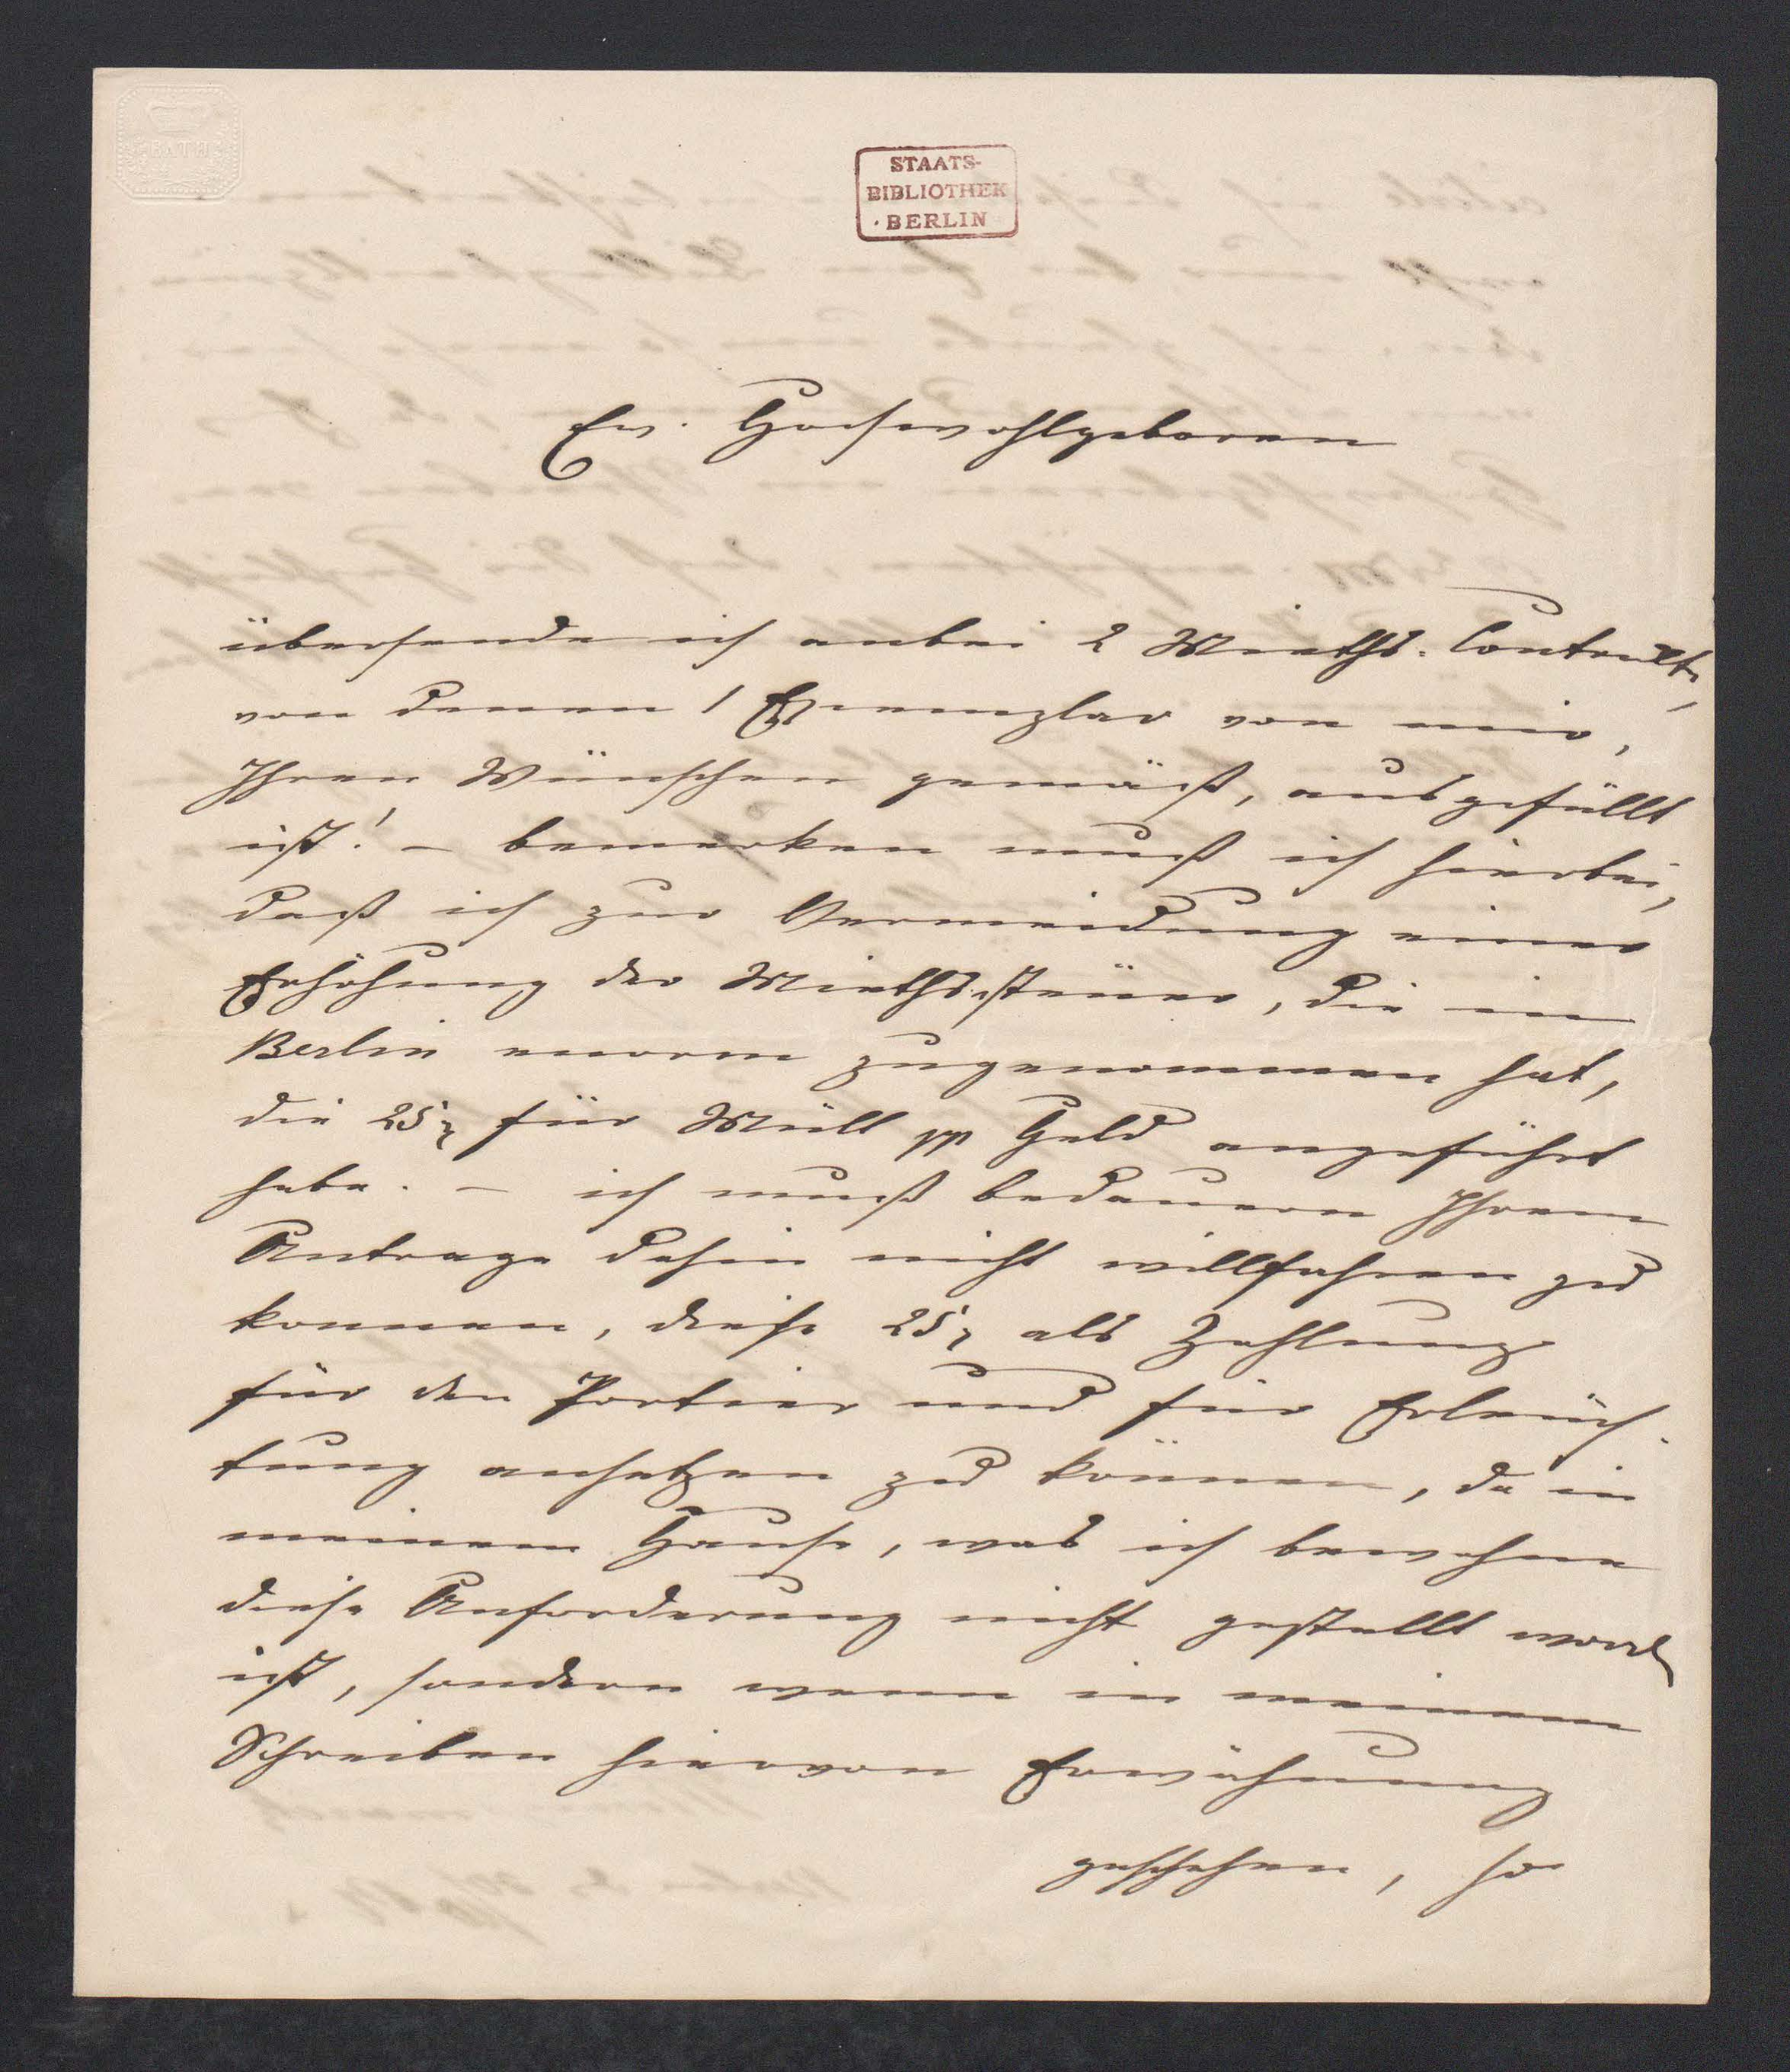 BATH
STAATS-
BIBLIOTHEK
· BERLIN
Ew. Hochwohlgeboren
übersende ich anbei 2 Mieths-Contrakte,
von denen 1 Exemplar von mir,
Ihren Wünschen gemäß, ausgefüllt
ist! – bemerken muß ich hierbei,
daß ich zur Vermeidung einer
Erhöhung der Miethssteuer, die in
Berlin enorm zugenommen hat,
die 25 für Müll pp Geld angeführt
habe. – ich muß bedauern Ihrem
Antrage dahin nicht willfahren zu
konnen, diese 25 als Zahlung
für den Portier und für Erleuch-
tung ansetzen zu können, da in
meinem Hause, was ich bewohne
diese Anforderung nicht gestellt worden
ist, sondern wenn in meinem
Schreiben hiervon Erwähnung
geschehen, so